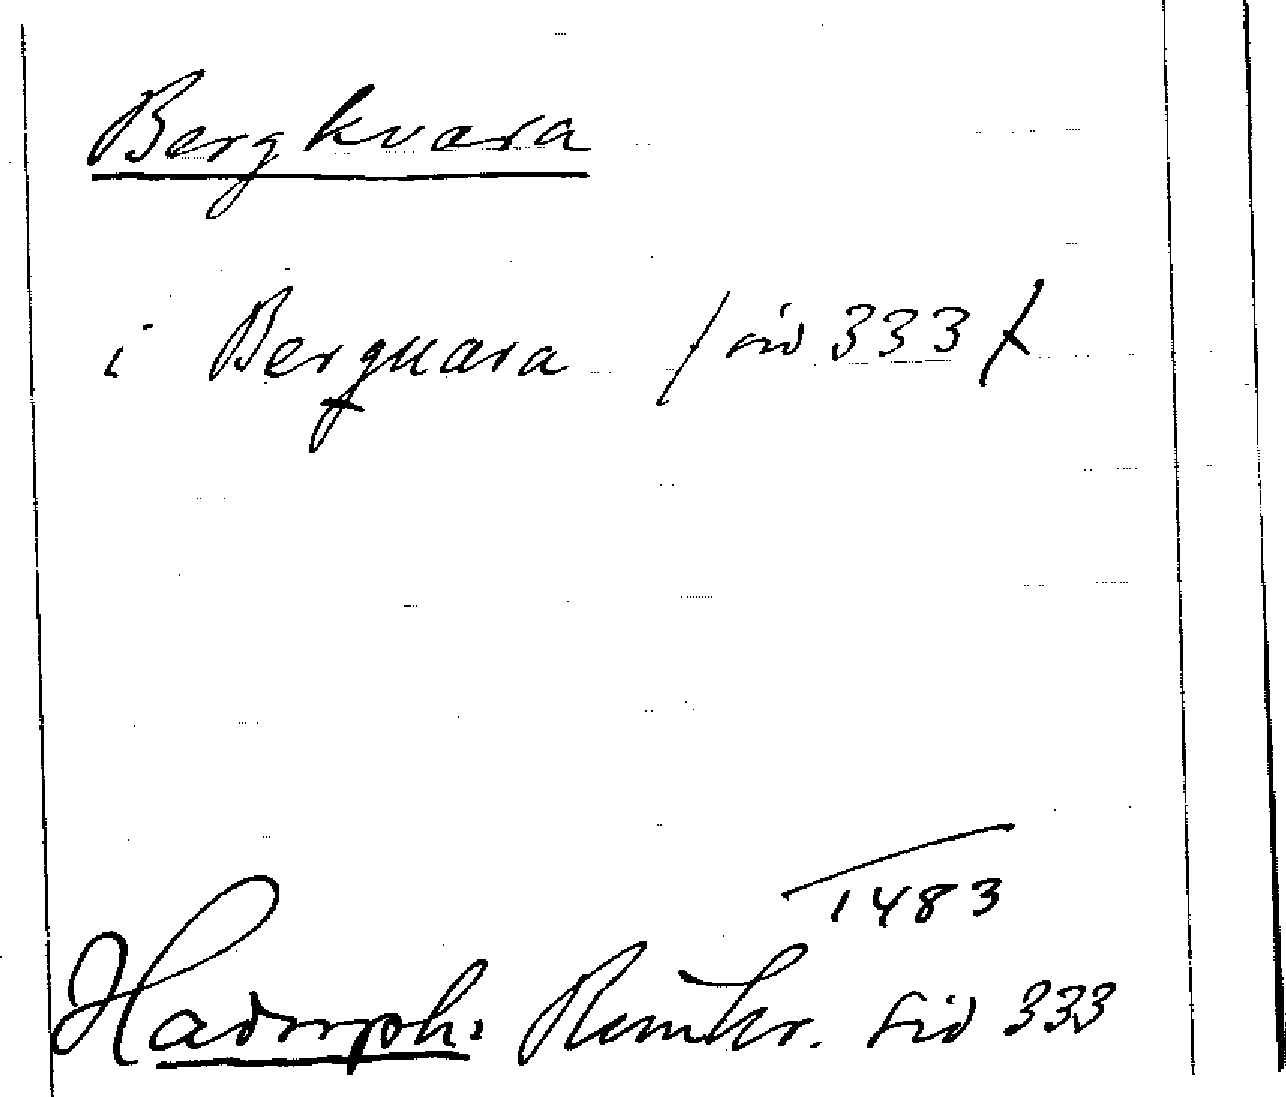 Bergkvara
i Berguara / sid 333 /
1483
Hadorph: Rimkr. sid 333